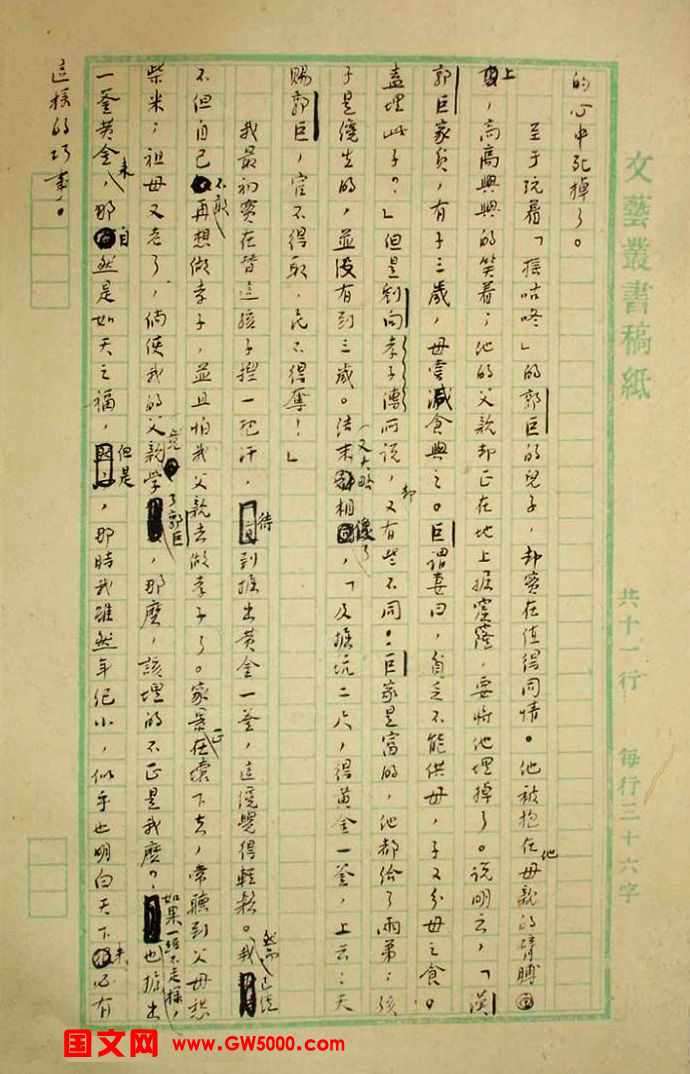 的心中死掉了。
至于玩着「搖咕咚」的郭巨的兒子，却實在值得同情。他被抱在他母親的臂膊
上，高高興興的笑着；他的父親却正在地上掘窟窿，要將他埋掉了。說明云，「漢
郭巨家貧，有子三歲，母嘗減食與之。巨謂妻曰，貧乏不能供母，子又分母之食。
盍埋此子？」但是劉向孝子傳所說，却又有些不同：巨家是富的，他都給了兩弟；孩
子是纔生的，並沒有到三歲。結末又大略相像了，「及掘坑二尺，得黃金一釜，上云：天
賜郭巨，官不得取，民不得奪！」
我最初實在替這孩子捏一把汗，待到掘出黃金一釜，這纔覺得輕鬆。然而我已經
不但自己不敢再想做孝子，並且怕我父親去做孝子了。家景正在壞下去，常聽到父母愁
柴米；祖母又老了，倘使我的父親竟學了郭巨，那麼，該埋的不正是我麼？如果一絲不走樣，也掘出
一釜黃金來，那自然是如天之福，但是，那時我雖然年紀小，似乎也明白天下未必有
這樣的巧事。
文藝叢書稿紙
共十一行 每行三十六字
国文网 www.GW5000.com